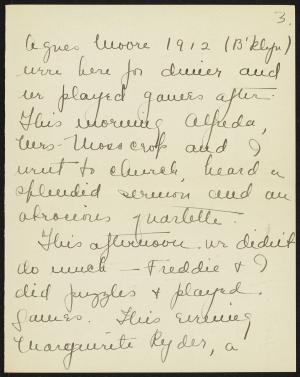 3.
Agnes Moore 1912 (B'klyn)
were here for dinner and
we played games after.
This morning Alfreda,
Mrs. Moscrop and I
went to church, heard a
splendid sermon and an
atrocious quartette.
This afternoon we didn't
do much - Freddie & I
did puzzles & played
games. This evening
Marguerite Ryder, a